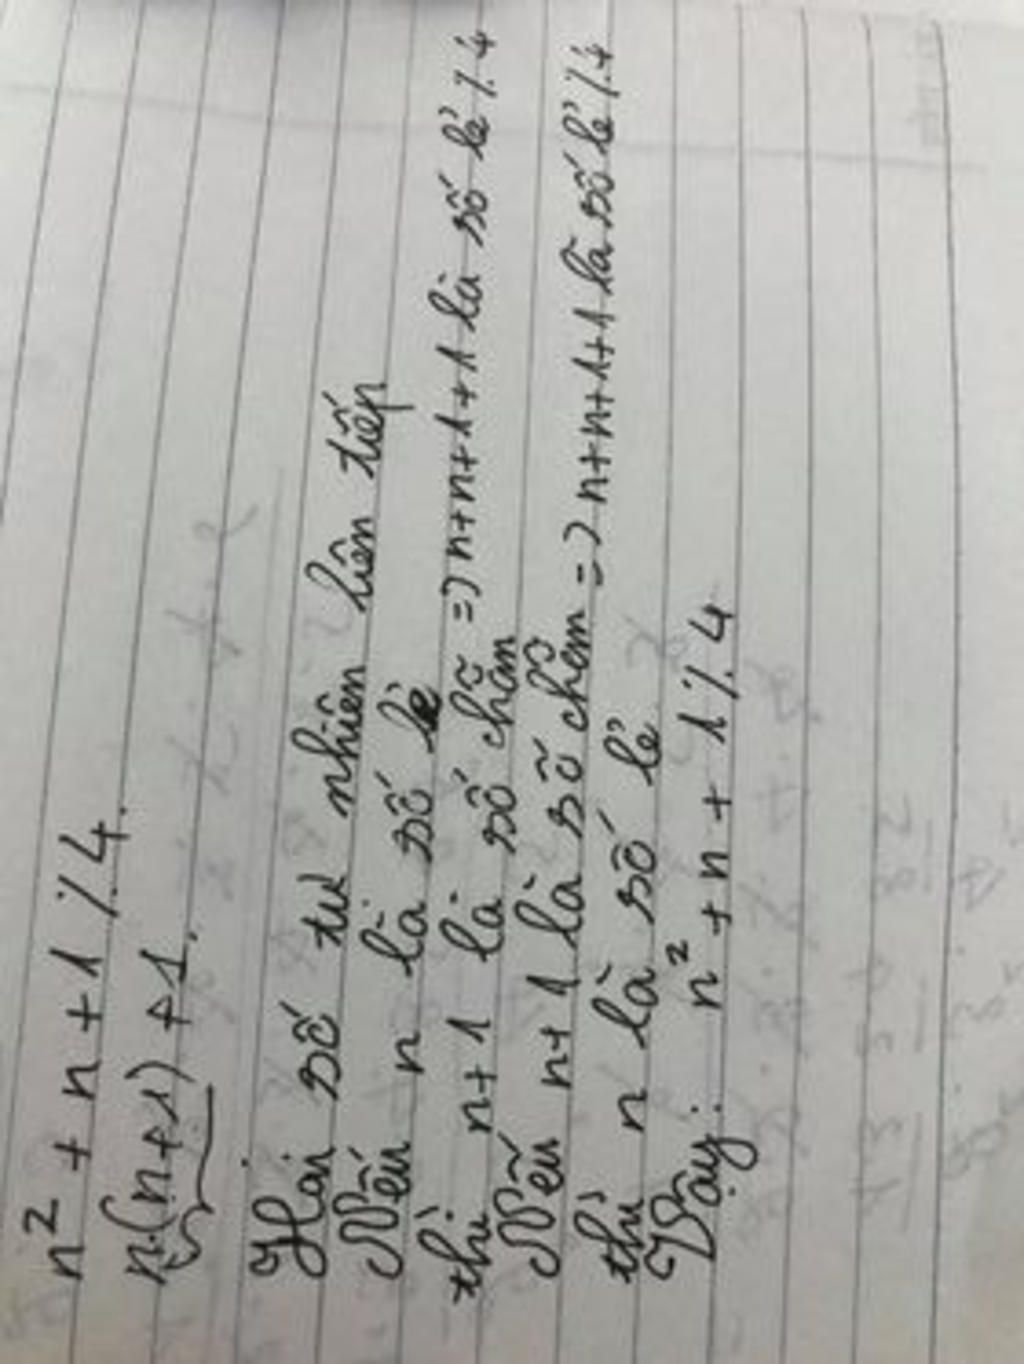 n² + n + 1 ⋮̸ 4.
n(n+1) + 1.
Hai số tự nhiên liên tiếp
Nếu n là số lẻ
thì n+1 là số chẵn => n+n+1+1 là số lẻ ⋮̸ 4
Nếu n+1 là số chẵn => n+n+1+1 là số lẻ ⋮̸ 4
thì n là số lẻ
Vậy: n² + n + 1 ⋮̸ 4